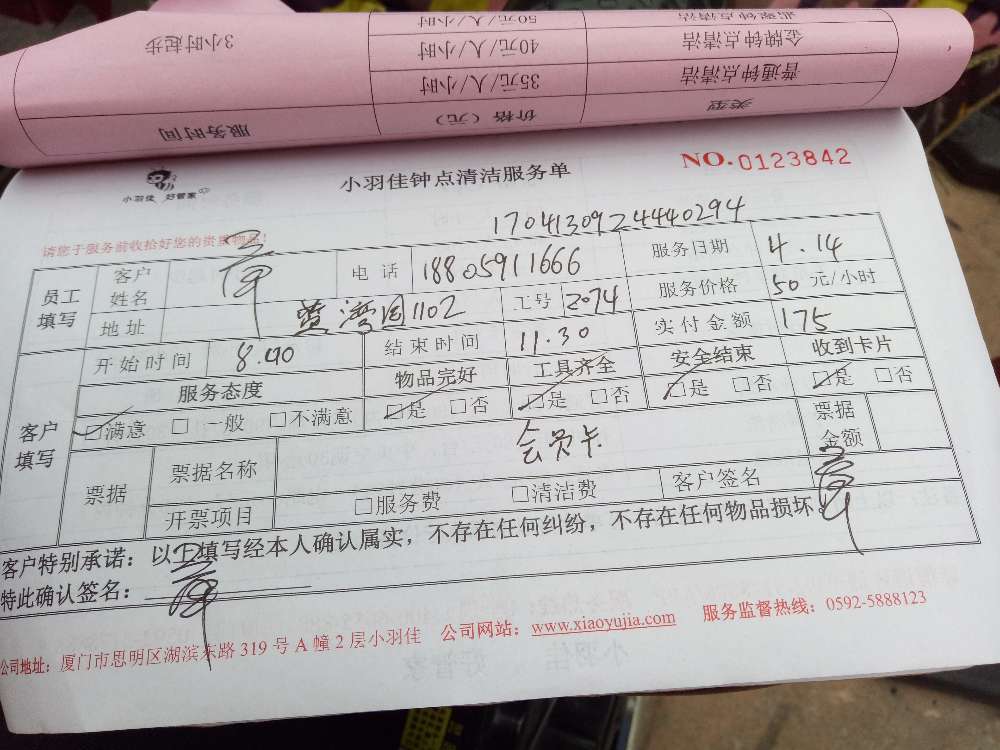 类型 价格（元） 服务时间
普通钟点清洁 35元/人/小时
金牌钟点清洁 40元/人/小时 3小时起步
50元/人/小时
小羽佳 好管家
小羽佳钟点清洁服务单 NO.0123842
1704130924440294
请您于服务前收拾好您的贵重物品！
员工填写 客户姓名 电话 18805911666 服务日期 4.14
地址 湾园1102 工号 2074 服务价格 50 元/小时
客户填写 开始时间 8.40 结束时间 11.30 实付金额 175
服务态度 物品完好 工具齐全 安全结束 收到卡片
□满意 □一般 □不满意 □是 □否 □是 □否 □是 □否 □是 □否
票据 票据名称 会员卡 票据金额
开票项目 □服务费 □清洁费 客户签名
客户特别承诺：以上填写经本人确认属实，不存在任何纠纷，不存在任何物品损坏
特此确认签名：
公司地址：厦门市思明区湖滨东路319号A幢2层小羽佳 公司网站：www.xiaoyujia.com 服务监督热线：0592-5888123